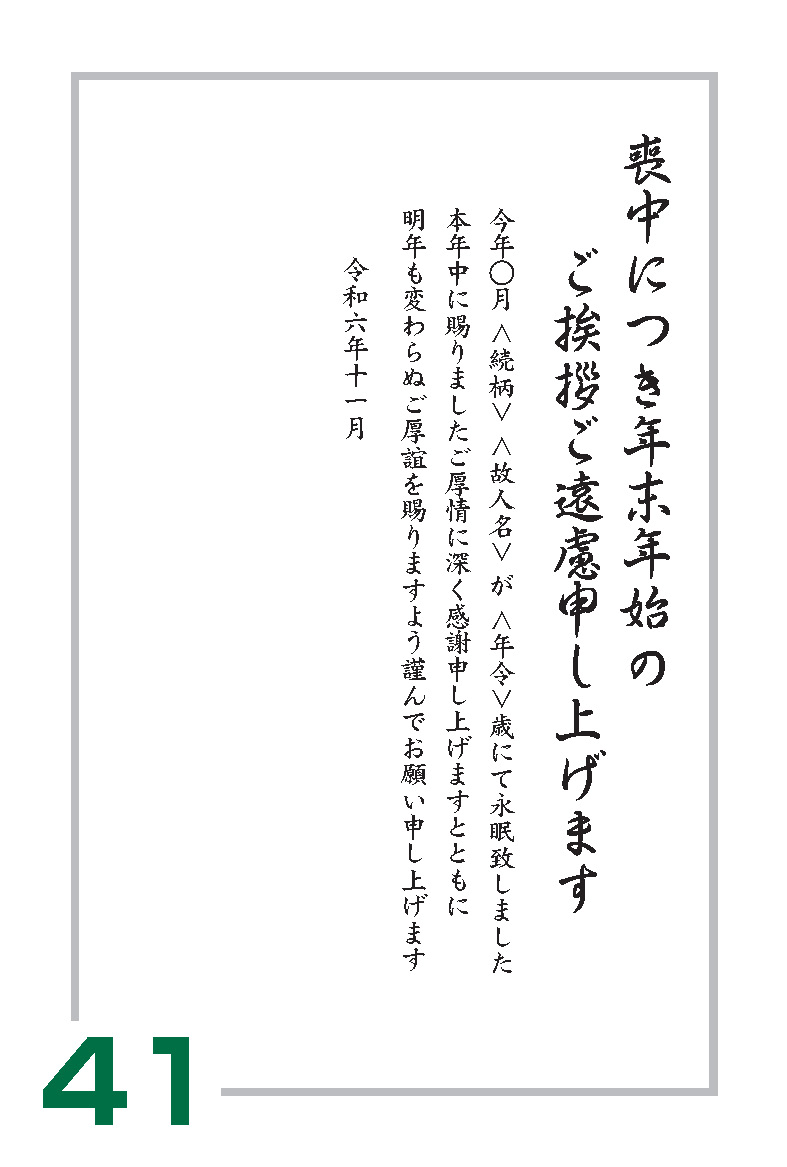 喪中につき年末年始の
ご挨拶ご遠慮申し上げます
今年〇月＜続柄＞＜故人名＞が＜年令＞歳にて永眠致しました
本年中に賜りましたご厚情に深く感謝申し上げますとともに
明年も変わらぬご厚誼を賜りますよう謹んでお願い申し上げます
令和六年十一月
41